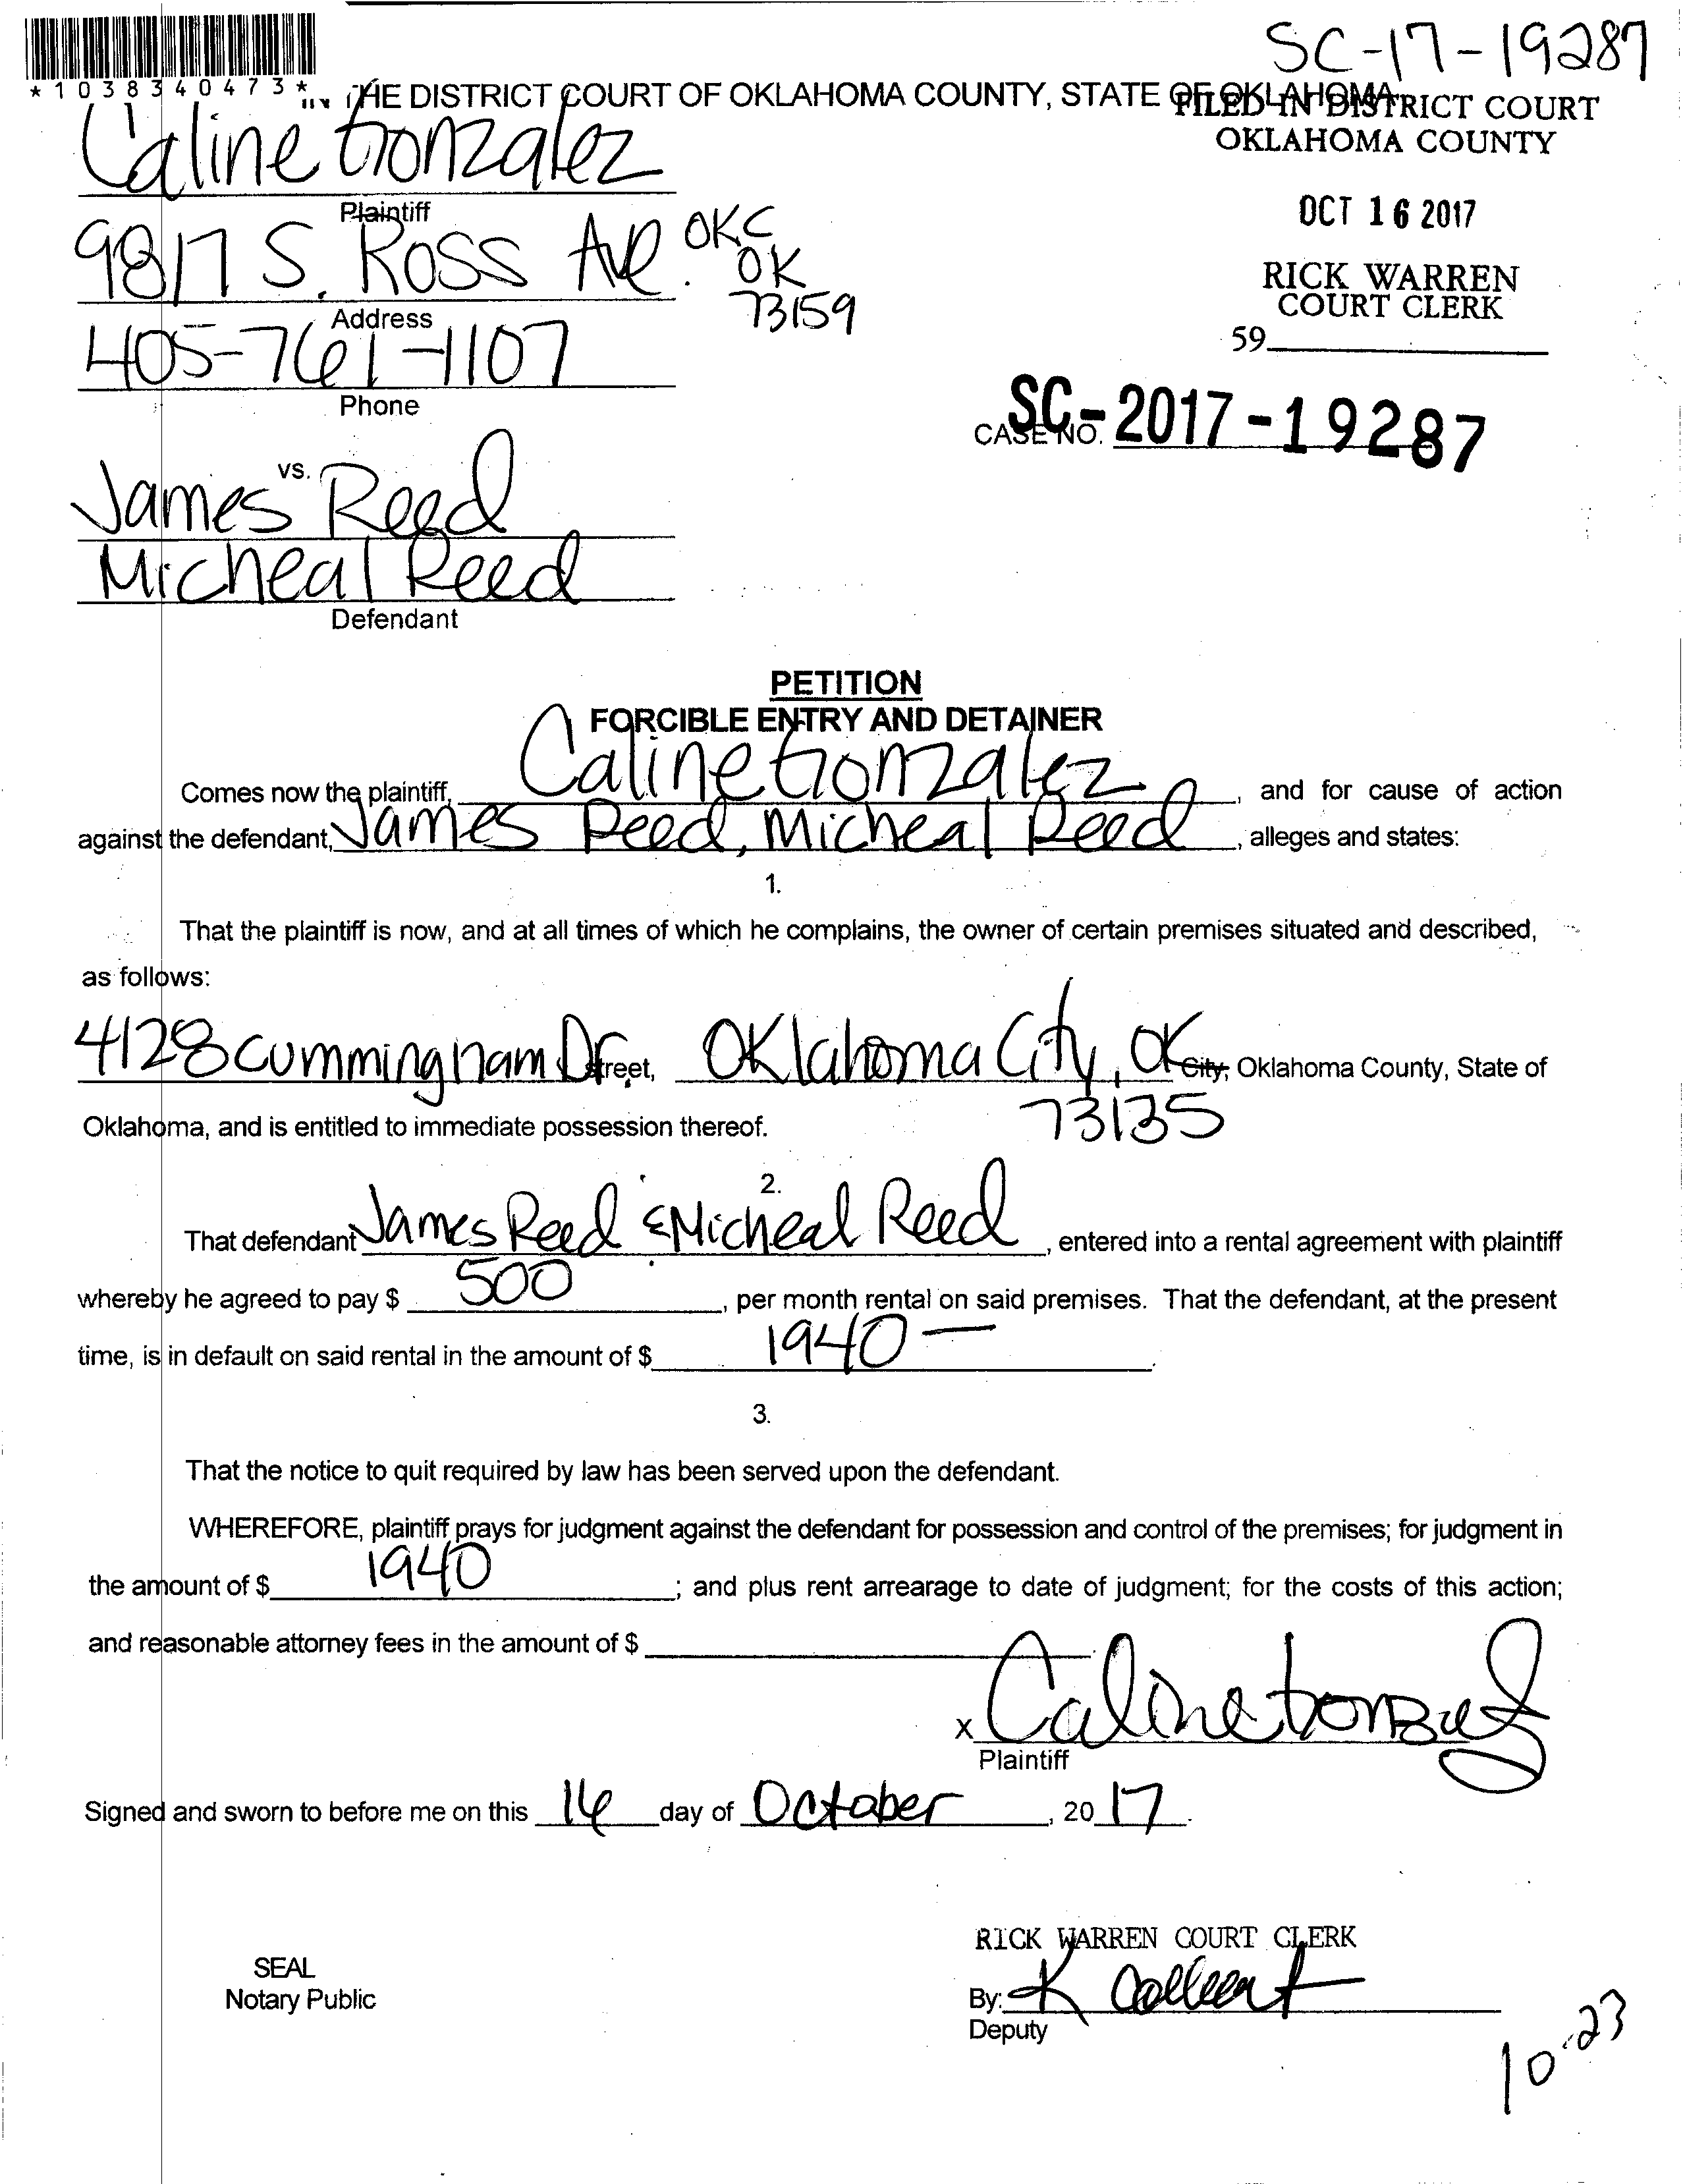 SC-17-19287
*1038340473*
IN THE DISTRICT COURT OF OKLAHOMA COUNTY, STATE OF OKLAHOMA
FILED IN DISTRICT COURT
OKLAHOMA COUNTY
Caline Gonzalez
Plaintiff
OCT 16 2017
9817 S. Ross Ave. OKC
OK
73159
RICK WARREN
COURT CLERK
Address
59
405-761-1107
Phone
CASE NO. SC-2017-19287
vs.
James Reed
Micheal Reed
Defendant
PETITION
FORCIBLE ENTRY AND DETAINER
Comes now the plaintiff, Caline Gonzalez, and for cause of action
against the defendant, James Reed, Micheal Reed, alleges and states:
1.
That the plaintiff is now, and at all times of which he complains, the owner of certain premises situated and described,
as follows:
4128 Cummingham Dr Street, Oklahoma City, OK City, Oklahoma County, State of
73135
Oklahoma, and is entitled to immediate possession thereof.
2.
That defendant James Reed & Micheal Reed, entered into a rental agreement with plaintiff
whereby he agreed to pay $ 500, per month rental on said premises. That the defendant, at the present
time, is in default on said rental in the amount of $ 1940—.
3.
That the notice to quit required by law has been served upon the defendant.
WHEREFORE, plaintiff prays for judgment against the defendant for possession and control of the premises; for judgment in
the amount of $ 1940; and plus rent arrearage to date of judgment; for the costs of this action;
and reasonable attorney fees in the amount of $
x Caline Gonzalez
Plaintiff
Signed and sworn to before me on this 16 day of October, 2017.
RICK WARREN COURT CLERK
SEAL
Notary Public
By: K
Deputy
10-23